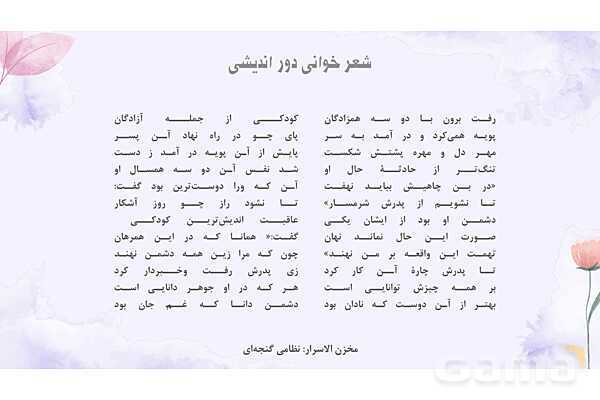 شعر خوانی دور اندیشی
کودکی از جمله آزادگان
رفت برون با دو سه همزادگان
پای چو در راه نهاد آن پسر
پویه همی‌کرد و در آمد به سر
پایش از آن پویه در آمد ز دست
مهر دل و مهره پشتش شکست
شد نفس آن دو سه همسال او
تنگ‌تر از حادثهٔ حال او
آن که ورا دوست‌ترین بود گفت:
«در بن چاهیش بباید نهفت
تا نشود راز چو روز آشکار
تا نشویم از پدرش شرمسار»
عاقبت اندیش‌ترین کودکی
دشمن او بود از ایشان یکی
گفت:« همانا که در این همرهان
صورت این حال نماند نهان
چون که مرا زین همه دشمن نهند
تهمت این واقعه بر من نهند»
زی پدرش رفت وخبردار کرد
تا پدرش چارهٔ آن کار کرد
هر که در او جوهر دانایی است
بر همه چیزش توانایی است
دشمن دانا که غم جان بود
بهتر از آن دوست که نادان بود
مخزن الاسرار: نظامی گنجه‌ای
Gama